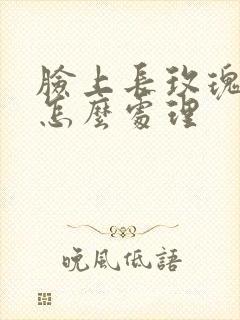 臉上長玫瑰
怎麼處理
晚風低語